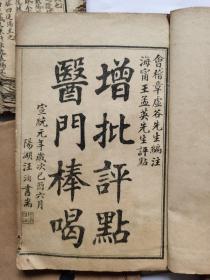 會稽章虛谷先生編注
海甯王孟英先生評點
增批評點
醫門棒喝
宣統元年歲次己酉六月
陽湖汪洵書耑